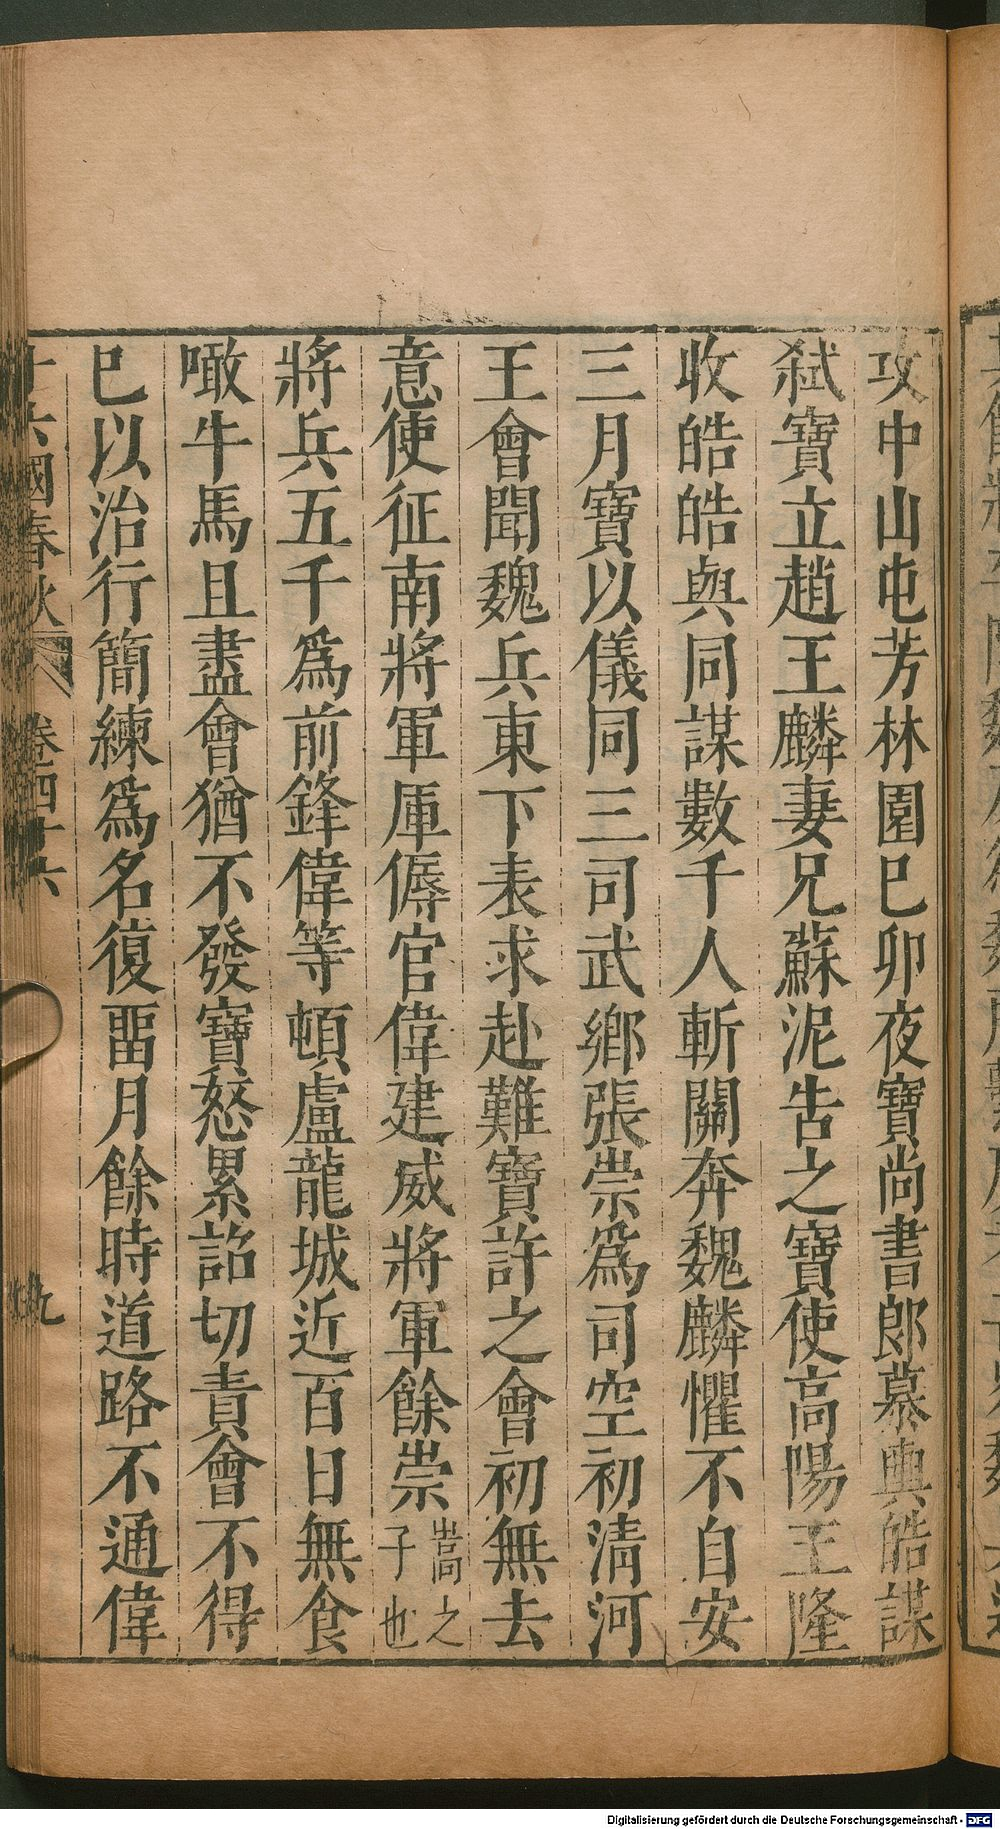 攻中山屯芳林園巳卯夜寶尚書郎慕輿皓謀
弒寶立趙王麟妻兄蘇泥告之寶使高陽王隆
收皓皓與同謀數千人斬關奔魏麟懼不自安
三月寶以儀同三司武鄉張崇爲司空初清河
王會聞魏兵東下表求赴難寶許之會初無去
意使征南將軍厙傉官偉建威將軍餘崇嵩之子也
將兵五千爲前鋒偉等頓盧龍城近百日無食
噉牛馬且盡會猶不發寶怒累詔切責會不得
巳以治行簡練爲名復畱月餘時道路不通偉
十六國春秋 卷四十六 九
Digitalisierung gefördert durch die Deutsche Forschungsgemeinschaft - DFG